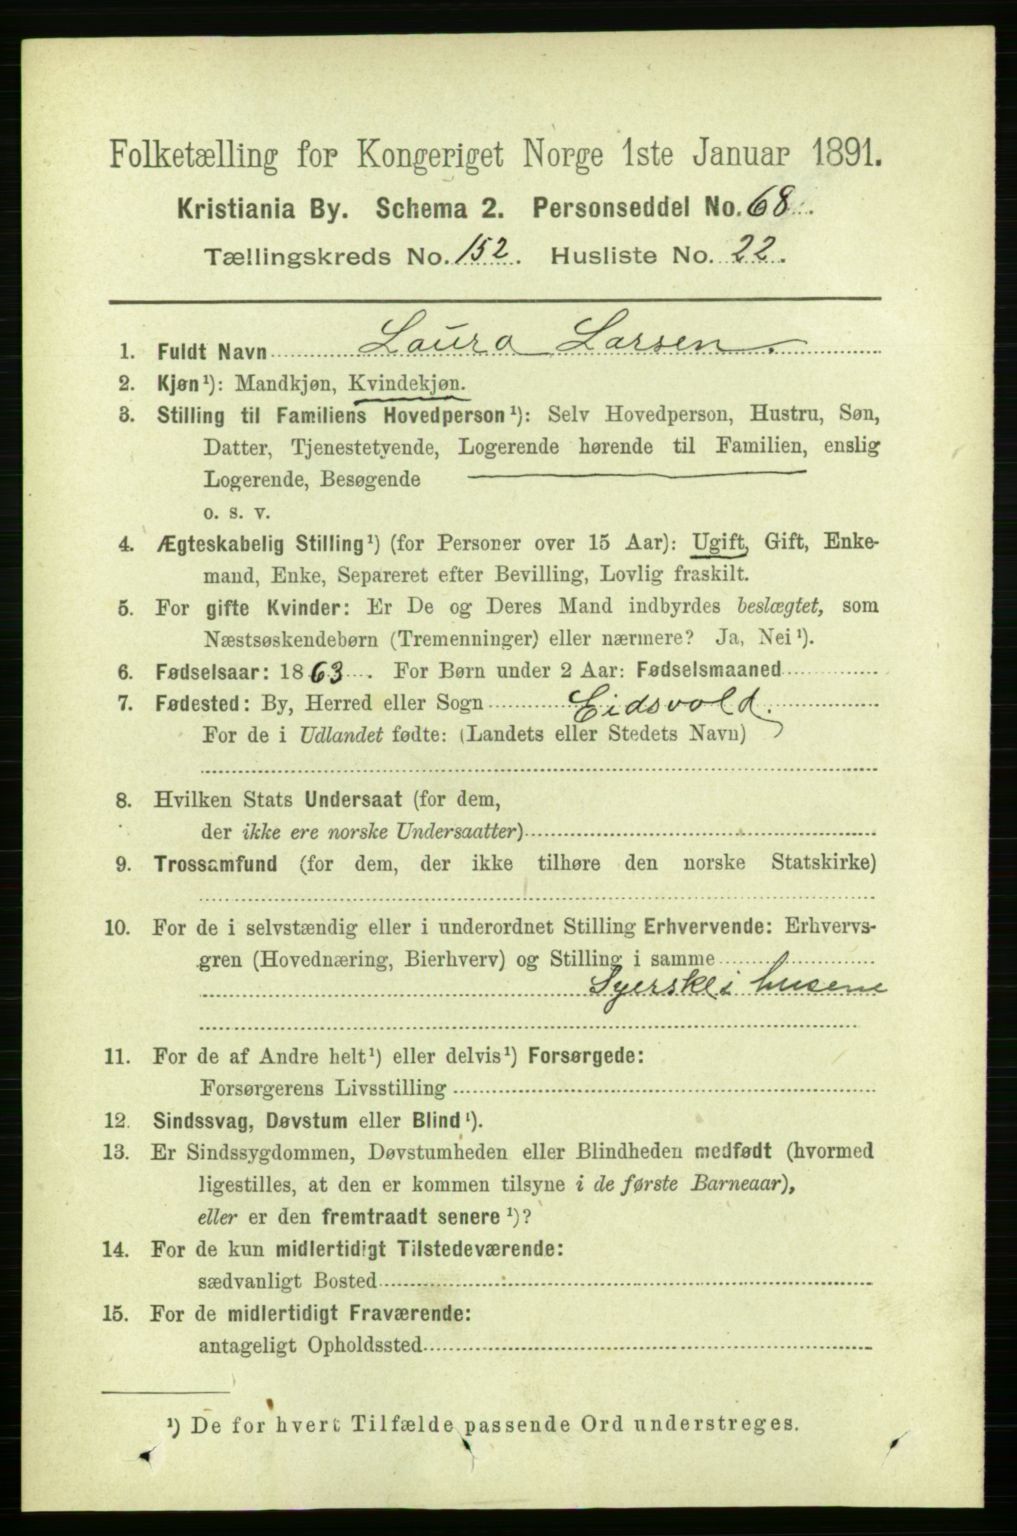 Folketælling for Kongeriget Norge 1ste Januar 1891.
Kristiania By. Schema 2. Personseddel No. 68.
Tællingskreds No. 152. Husliste No. 22.
1. Fuldt Navn Laura Larsen.
2. Kjøn¹): Mandkjøn, Kvindekjøn.
3. Stilling til Familiens Hovedperson¹): Selv Hovedperson, Hustru, Søn,
Datter, Tjenestetyende, Logerende hørende til Familien, enslig
Logerende, Besøgende
o. s. v.
4. Ægteskabelig Stilling¹) (for Personer over 15 Aar): Ugift, Gift, Enke-
mand, Enke, Separeret efter Bevilling, Lovlig fraskilt.
5. For gifte Kvinder: Er De og Deres Mand indbyrdes beslægtet, som
Næstsøskendebørn (Tremenninger) eller nærmere? Ja, Nei¹).
6. Fødselsaar: 1863. For Børn under 2 Aar: Fødselsmaaned
7. Fødested: By, Herred eller Sogn Eidsvold.
For de i Udlandet fødte: (Landets eller Stedets Navn)
8. Hvilken Stats Undersaat (for dem,
der ikke ere norske Undersaatter)
9. Trossamfund (for dem, der ikke tilhøre den norske Statskirke)
10. For de i selvstændig eller i underordnet Stilling Erhvervende: Erhvervs-
gren (Hovednæring, Bierhverv) og Stilling i samme
Syerske i husene
11. For de af Andre helt¹) eller delvis¹) Forsørgede:
Forsørgerens Livsstilling
12. Sindssvag, Døvstum eller Blind¹).
13. Er Sindssygdommen, Døvstumheden eller Blindheden medfødt (hvormed
ligestilles, at den er kommen tilsyne i de første Barneaar),
eller er den fremtraadt senere¹)?
14. For de kun midlertidigt Tilstedeværende:
sædvanligt Bosted
15. For de midlertidigt Fraværende:
antageligt Opholdssted
¹) De for hvert Tilfælde passende Ord understreges.